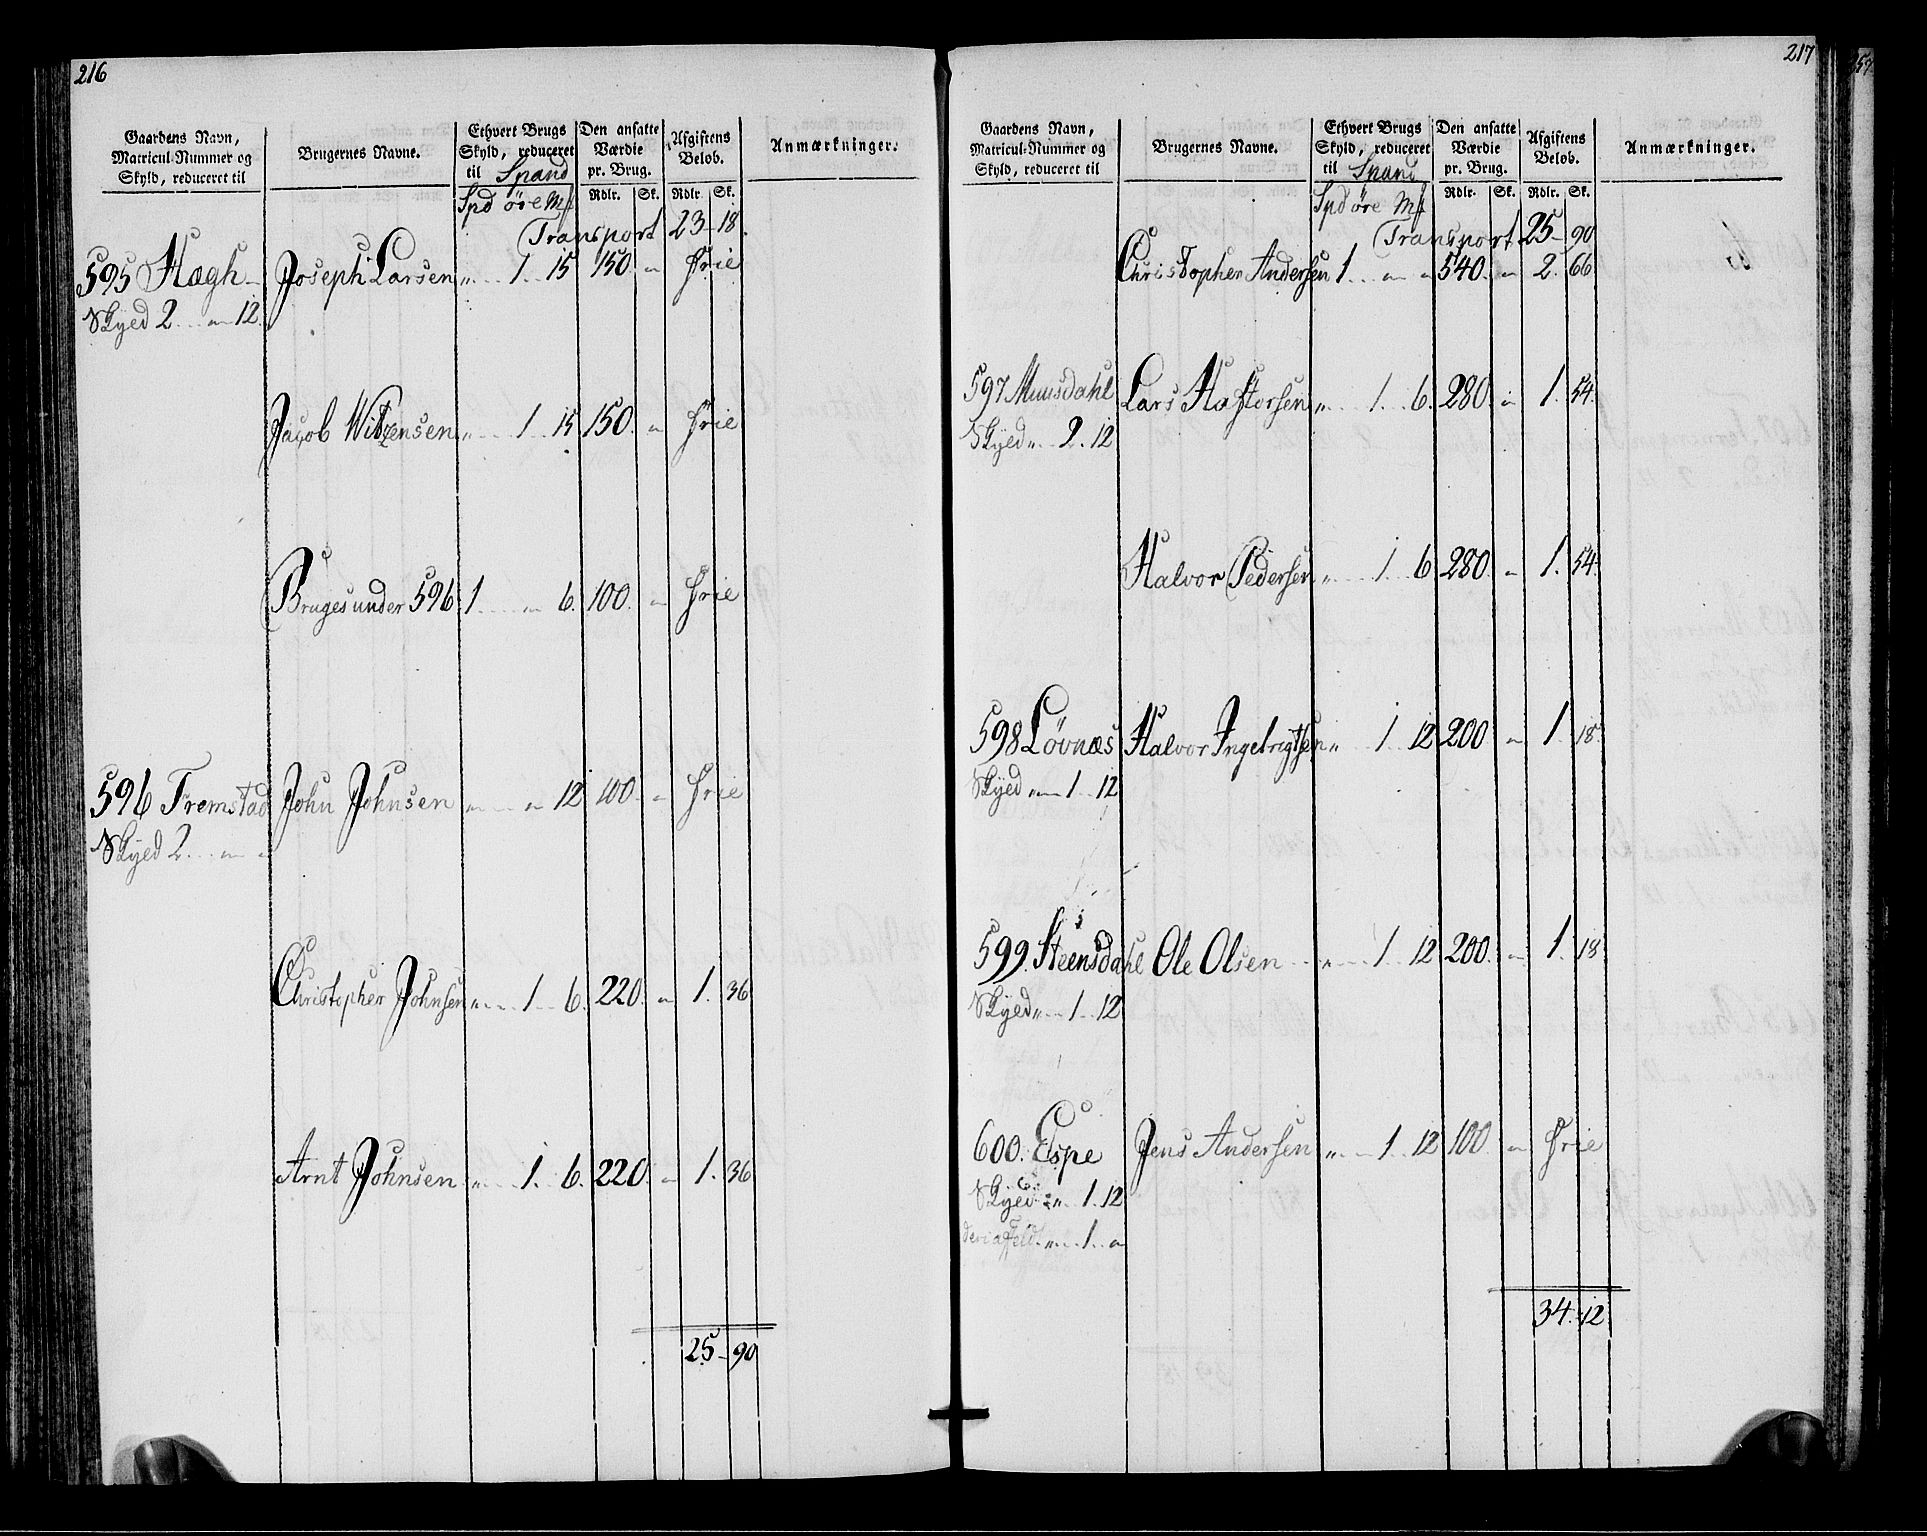 216
Gaardens Navn, Matricul-Nummer og Skyld, reduceret til | Brugernes Navne. | Ethvert Brugs Skyld, reduceret til Spand | Den ansatte Værdie pr. Brug. | Afgiftens Beløb. | Anmærkninger.
Spd øre Mk | Rdlr. | Sk. | Rdlr. | Sk.
Transport 23 - 18.
595 Høgh - Joseph Larsen „ 1 15 150 „ Frie
Skyld 2 „ 12.
Jacob Witzensen „ 1 15 150. „ Frie
Bruges under 596 1 „ 6. 100. „ Frie
596 Fremstad John Johnsen „ „ 12 100. „ Frie
Skyld 2 „ „
Christopher Johnsen „ 1 6. 220. „ 1. 36
Arnt Johnsen „ 1. 6. 220. „ 1. 36
25 - 90
217
Gaardens Navn, Matricul-Nummer og Skyld, reduceret til | Brugernes Navne. | Ethvert Brugs Skyld, reduceret til Spand | Den ansatte Værdie pr. Brug. | Afgiftens Beløb. | Anmærkninger.
Spd øre Mk | Rdlr. | Sk. | Rdlr. | Sk.
Transport 25 - 90
Christopher Andersen 1 „ „ 540. „ 2. 66
597 Muusdahl Lars Hastorsen „ 1. 6. 280. „ 1. 54.
Skyld „ 2. 12
Halvor Pedersen „ 1. 6 280. „ 1. 54.
598 Løvnæs Halvor Ingebrigtsen „ 1 12 200 „ 1. 18.
Skyld „ 1 12
599. Steensdahl Ole Olsen „ 1 12 200. „ 1. 18
Skyld „ 1 12
600. Espe Jens Andersen „ 1 12 100. „ Frie
Skyld „ 1. 12
„ 1 „
34. 12.